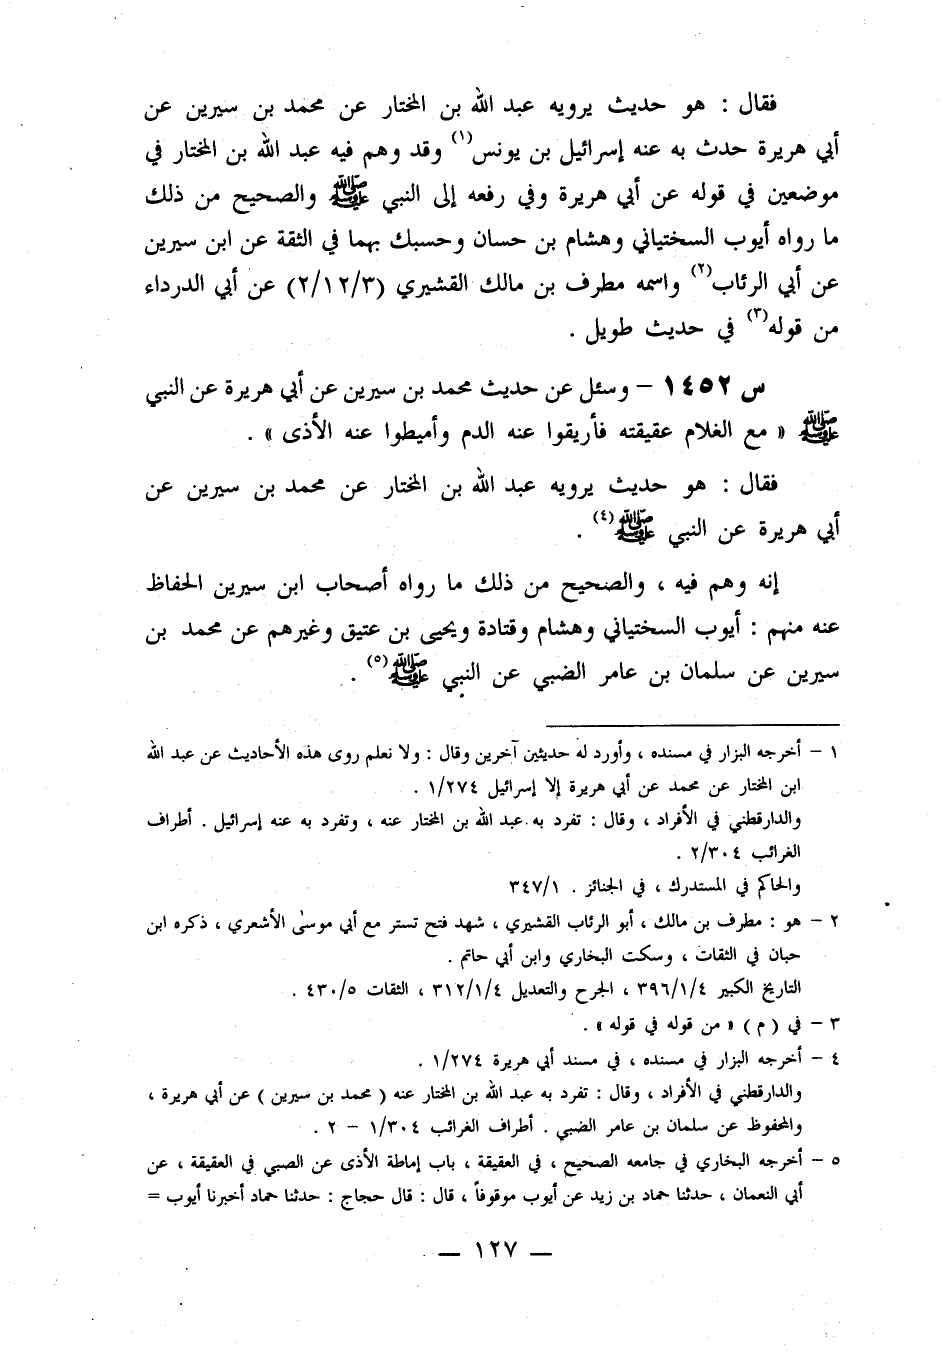 فقال : هو حديث يرويه عبد الله بن المختار عن محمد بن سيرين عن
أبي هريرة حدث به عنه إسرائيل بن يونس(١) وقد وهم فيه عبد الله بن المختار في
موضعين في قوله عن أبي هريرة وفي رفعه إلى النبي ﷺ والصحيح من ذلك
ما رواه أيوب السختياني وهشام بن حسان وحسبك بهما في الثقة عن ابن سيرين
عن أبي الرئاب(٢) واسمه مطرف بن مالك القشيري (٢/١٢/٣) عن أبي الدرداء
من قوله(٣) في حديث طويل .
س ١٤٥٢ – وسئل عن حديث محمد بن سيرين عن أبي هريرة عن النبي
ﷺ « مع الغلام عقيقته فأريقوا عنه الدم وأميطوا عنه الأذى » .
فقال : هو حديث يرويه عبد الله بن المختار عن محمد بن سيرين عن
أبي هريرة عن النبي ﷺ(٤) .
إنه وهم فيه ، والصحيح من ذلك ما رواه أصحاب ابن سيرين الحفاظ
عنه منهم : أيوب السختياني وهشام وقتادة ويحيى بن عتيق وغيرهم عن محمد بن
سيرين عن سلمان بن عامر الضبي عن النبي ﷺ(٥) .
١ – أخرجه البزار في مسنده ، وأورد له حديثين آخرين وقال : ولا نعلم روى هذه الأحاديث عن عبد الله
ابن المختار عن محمد عن أبي هريرة إلا إسرائيل ١/٢٧٤ .
والدارقطني في الأفراد ، وقال : تفرد به عبد الله بن المختار عنه ، وتفرد به عنه إسرائيل . أطراف
الغرائب ٢/٣٠٤ .
والحاكم في المستدرك ، في الجنائز . ٣٤٧/١
٢ – هو : مطرف بن مالك ، أبو الرئاب القشيري ، شهد فتح تستر مع أبي موسىٰ الأشعري ، ذكره ابن
حبان في الثقات ، وسكت البخاري وابن أبي حاتم .
التاريخ الكبير ٣٩٦/١/٤ ، الجرح والتعديل ٣١٢/١/٤ ، الثقات ٤٣٠/٥ .
٣ – في ( م ) « من قوله في قوله » .
٤ – أخرجه البزار في مسنده ، في مسند أبي هريرة ١/٢٧٤ .
والدارقطني في الأفراد ، وقال : تفرد به عبد الله بن المختار عنه ( محمد بن سيرين ) عن أبي هريرة ،
والمحفوظ عن سلمان بن عامر الضبي . أطراف الغرائب ١/٣٠٤ – ٢ .
٥ – أخرجه البخاري في جامعه الصحيح ، في العقيقة ، باب إماطة الأذى عن الصبي في العقيقة ، عن
أبي النعمان ، حدثنا حماد بن زيد عن أيوب موقوفاً ، قال : قال حجاج : حدثنا حماد أخبرنا أيوب =
— ١٢٧ —